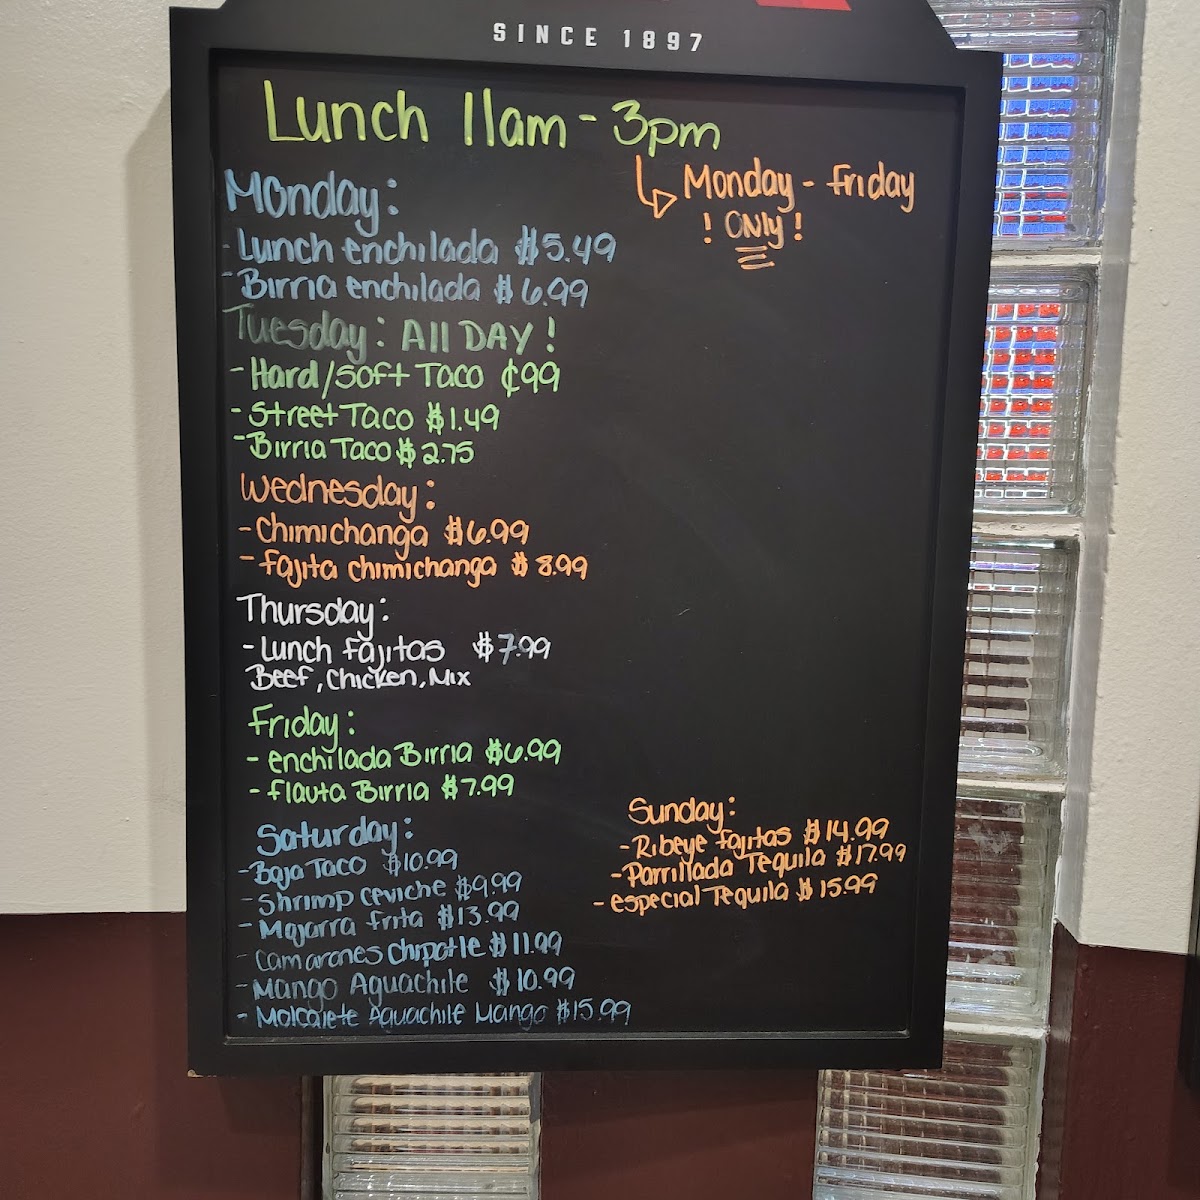 SINCE 1897
Lunch 11am - 3pm
Monday - Friday
! ONly !
Monday:
- Lunch enchilada $5.49
- Birria enchilada $6.99
Tuesday: All DAY!
- Hard/Soft Taco ¢99
- Street Taco $1.49
- Birria Taco $2.75
Wednesday:
- Chimichanga $6.99
- Fajita chimichanga $8.99
Thursday:
- Lunch Fajitas $7.99
Beef, Chicken, Mix
Friday:
- enchilada Birria $6.99
- flauta Birria $7.99
Saturday:
- Baja Taco $10.99
- Shrimp ceviche $9.99
- Mojarra frita $13.99
- Camarones chipotle $11.99
- Mango Aguachile $10.99
- Molcajete Aguachile Mango $15.99
Sunday:
- Ribeye fajitas $14.99
- Parrillada Tequila $17.99
- especial Tequila $15.99